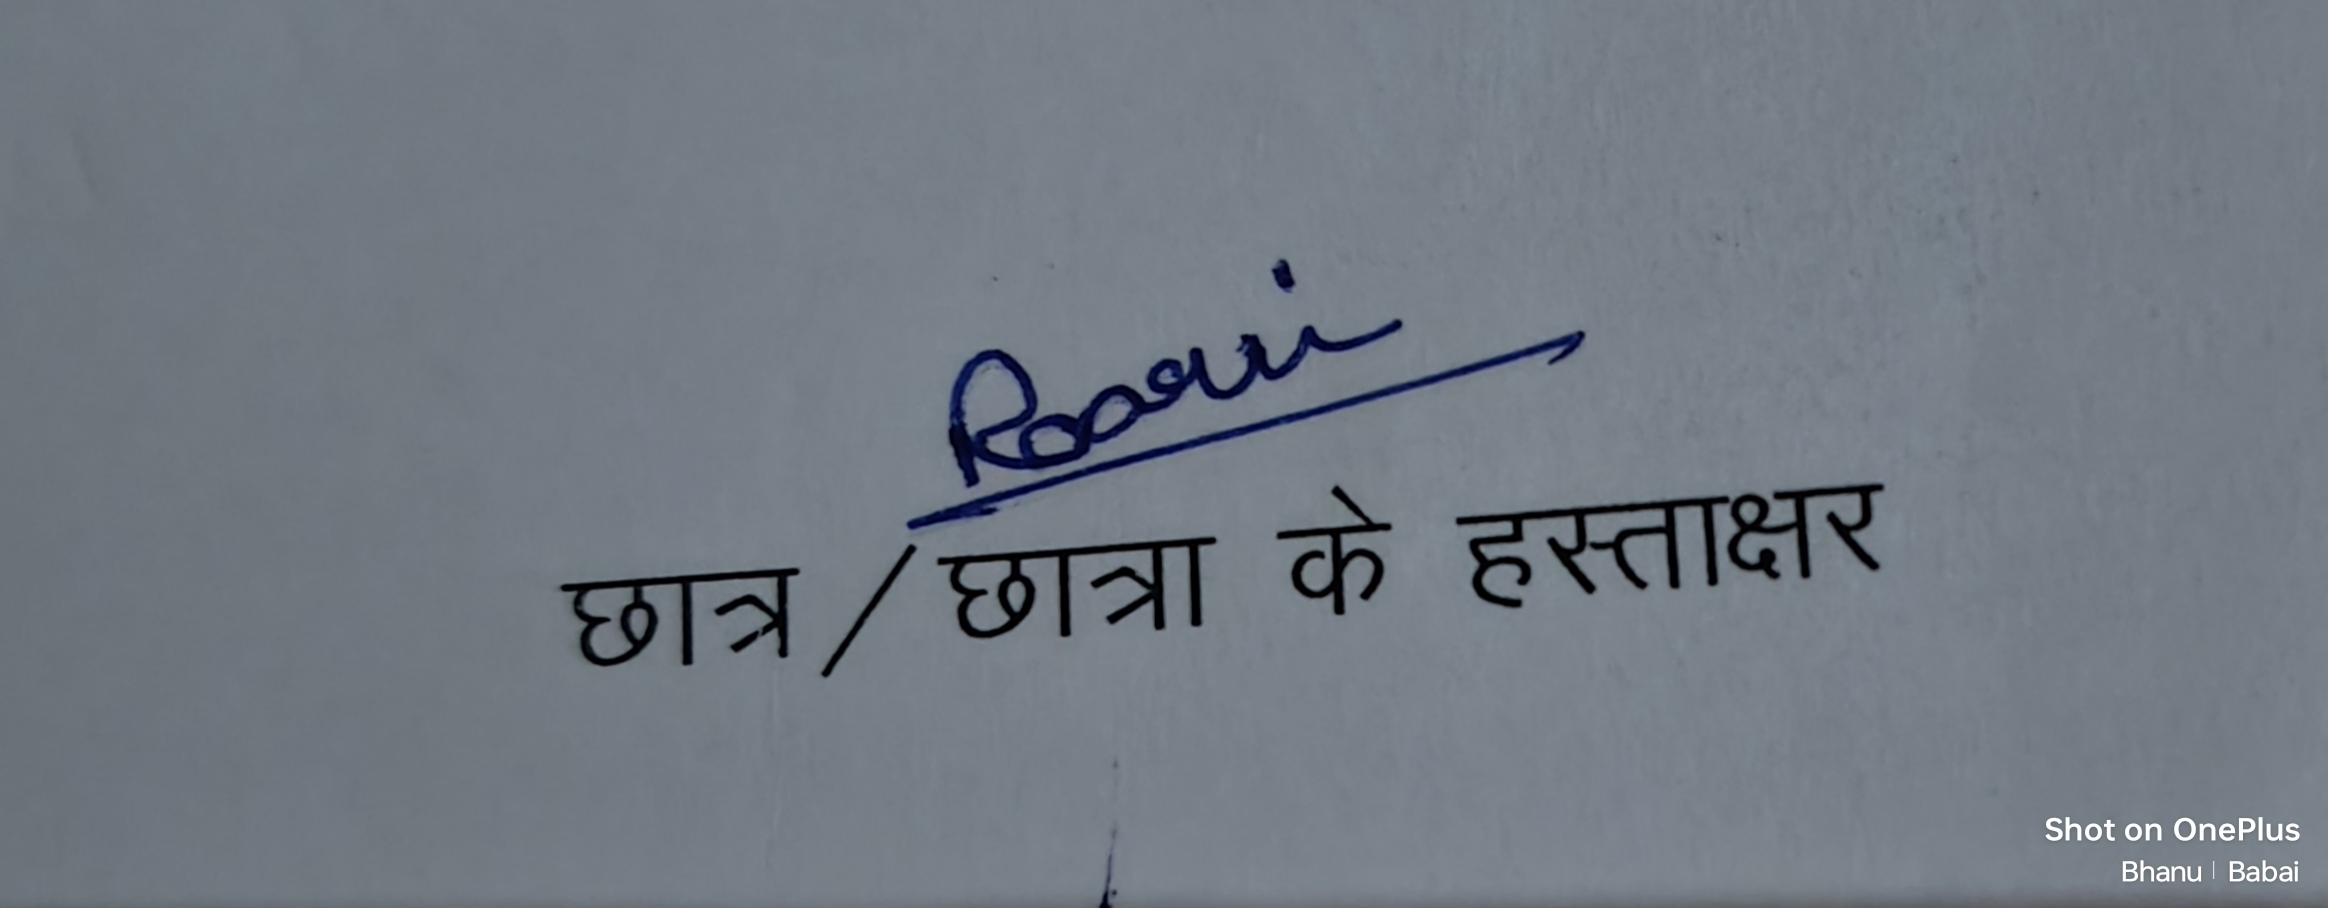 छात्र / छात्रा के हस्ताक्षर
Shot on OnePlus
Bhanu | Babai